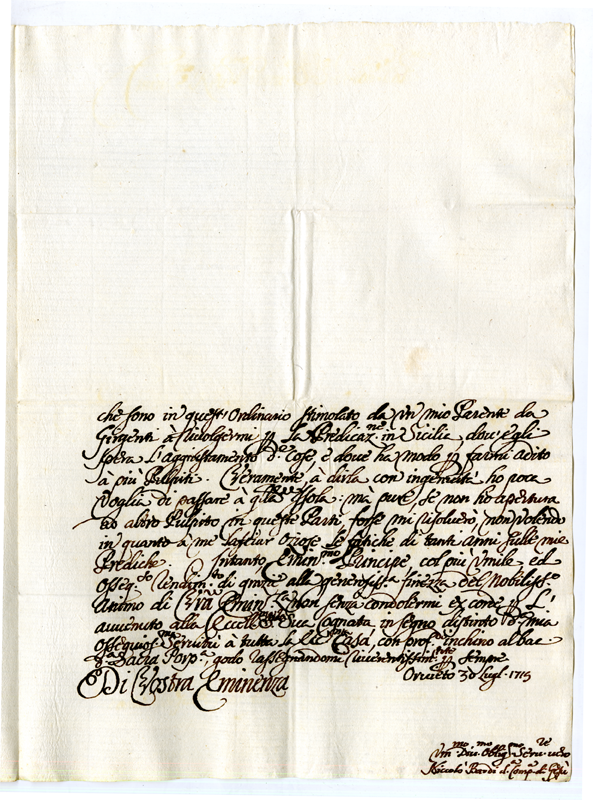 che sono in quest'Ordinario stimolato da un mio Parente da
Girgenti à rivolgermi p la Predicaz.ne in Sicilia, dov'egli
spera l'aggiustamento d.e cose, e dove ha modo p farmi adito
a più Pulpiti. Veramente, à dirla con ingenuità ho poca
Voglia di passare à q.lla Isola: ma pure, se non ho apertura
ad altro Pulpito in queste Parti, forse mi risolverò, non volendo
in quanto à me lasciar oziose le fatiche di tanti anni sulle mie
Prediche. Intanto Emin.mo Principe col più umile, ed
osseq.so rendim.to di grazie alla generosiss.a finezza del Nobiliss.o
Animo di Vra Emin.za non senza condolermi ex corde p l'
avvenuto alla Sua Cognata, in segno distinto d.a mia
ossequios.ma Servitù à tutta la Casa, con prof.o inchino al bac
d.a Sacra Porp.a, godo rassegnandomi riverentissim.te p sempre
Di Vostra Eminenza
Orvieto 30 Lugl. 1715
Um.mo Div.mo Oblig.mo Serv.re vero
Niccolò Bardi d. Comp.a di Giesù